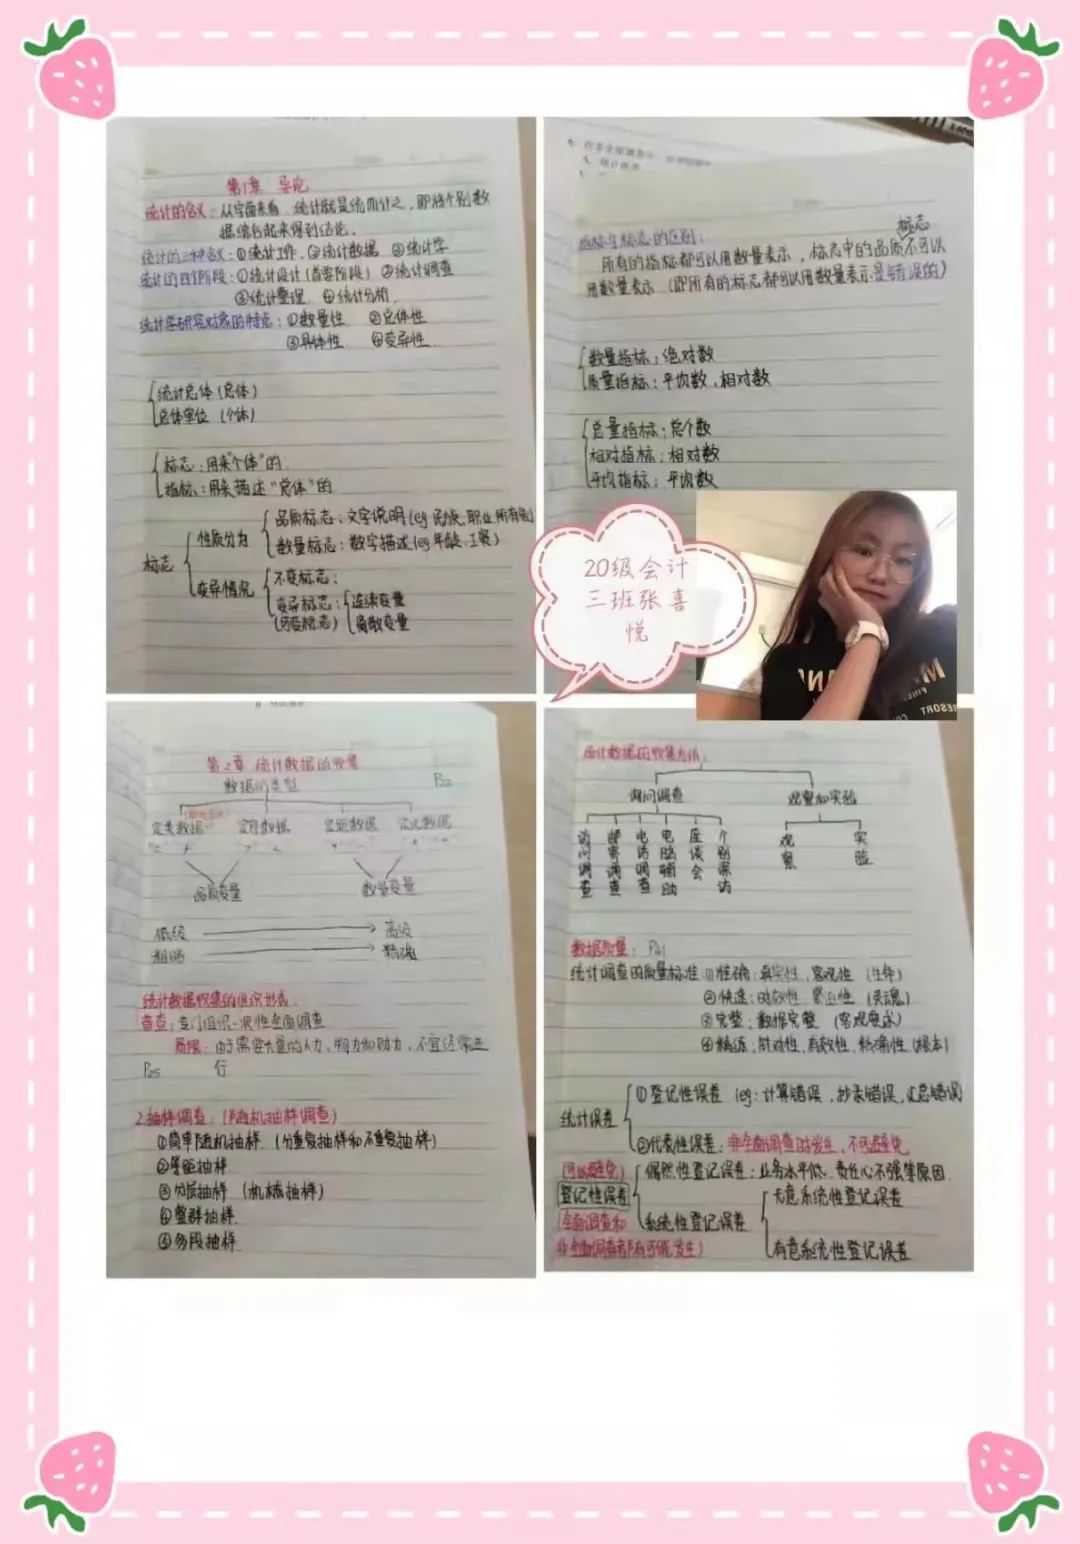 第1章 导论
统计的含义：从字面来看，统计就是统而计之，即将个别数
据综合起来得到结论。
统计的三种含义：①统计工作，②统计数据 ③统计学
统计的四个阶段：①统计设计(首要阶段) ②统计调查
③统计整理 ④统计分析
统计学研究对象的特点：①数量性 ②总体性
③具体性 ④变异性
统计总体(总体)
总体单位(个体)
标志：用来"个体"的
指标：用来描述"总体"的
标志
性质分为
品质标志：文字说明(eg民族,职业,所有制
数量标志：数字描述(eg年龄、工资)
变异情况
不变标志：
变异标志：
(可变标志)
连续变量
离散变量
标志
指标与标志的区别：
所有的指标都可以用数量表示，标志中的品质不可以
用数量表示 (即所有的标志都可以用数量表示是错误的)
数量指标：绝对数
质量指标：平均数，相对数
总量指标：总个数
相对指标：相对数
平均指标：平均数
20级会计
三班张喜
悦
第2章 统计数据的收集
数据的类型
定类数据 定序数据 定距数据 定比数据
品质变量 数量变量
低级 高级
粗略 精确
统计数据收集的组织形式：
普查：专门组织一次性全面调查
局限：由于需要大量的人力、物力和财力，不宜经常进
P25 行
2.抽样调查：(随机抽样调查)
①简单随机抽样 (分重复抽样和不重复抽样)
②等距抽样
③分层抽样 (机械抽样)
④整群抽样
⑤多段抽样
统计数据的收集方法：
询问调查 观察和实验
访问调查
邮寄调查
电话调查
电脑辅助
座谈会
个别深访
观察
实验
数据质量：
统计调查的质量标准 ①准确：真实性，客观性 (生命)
②快速：时效性，紧迫性 (灵魂)
③完整：数据完整 (客观要求)
④精练：针对性，有效性，精确性(根本)
统计误差
①登记性误差 (eg：计算错误，抄录错误，汇总错误)
②代表性误差：非全面调查时发生，不可避免
(可以避免)
登记性误差
(全面调查和
非全面调查都有可能发生)
偶然性登记误差：业务水平低、责任心不强等原因
系统性登记误差
无意系统性登记误差
有意系统性登记误差